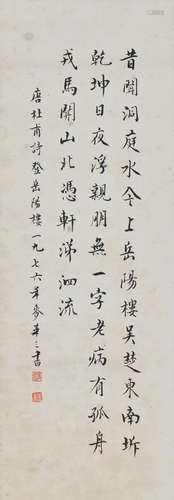 昔聞洞庭水今上岳陽樓吳楚東南坼
乾坤日夜浮親朋無一字老病有孤舟
戎馬關山北憑軒涕泗流
唐杜甫詩登岳陽樓一九七六年麥華三書